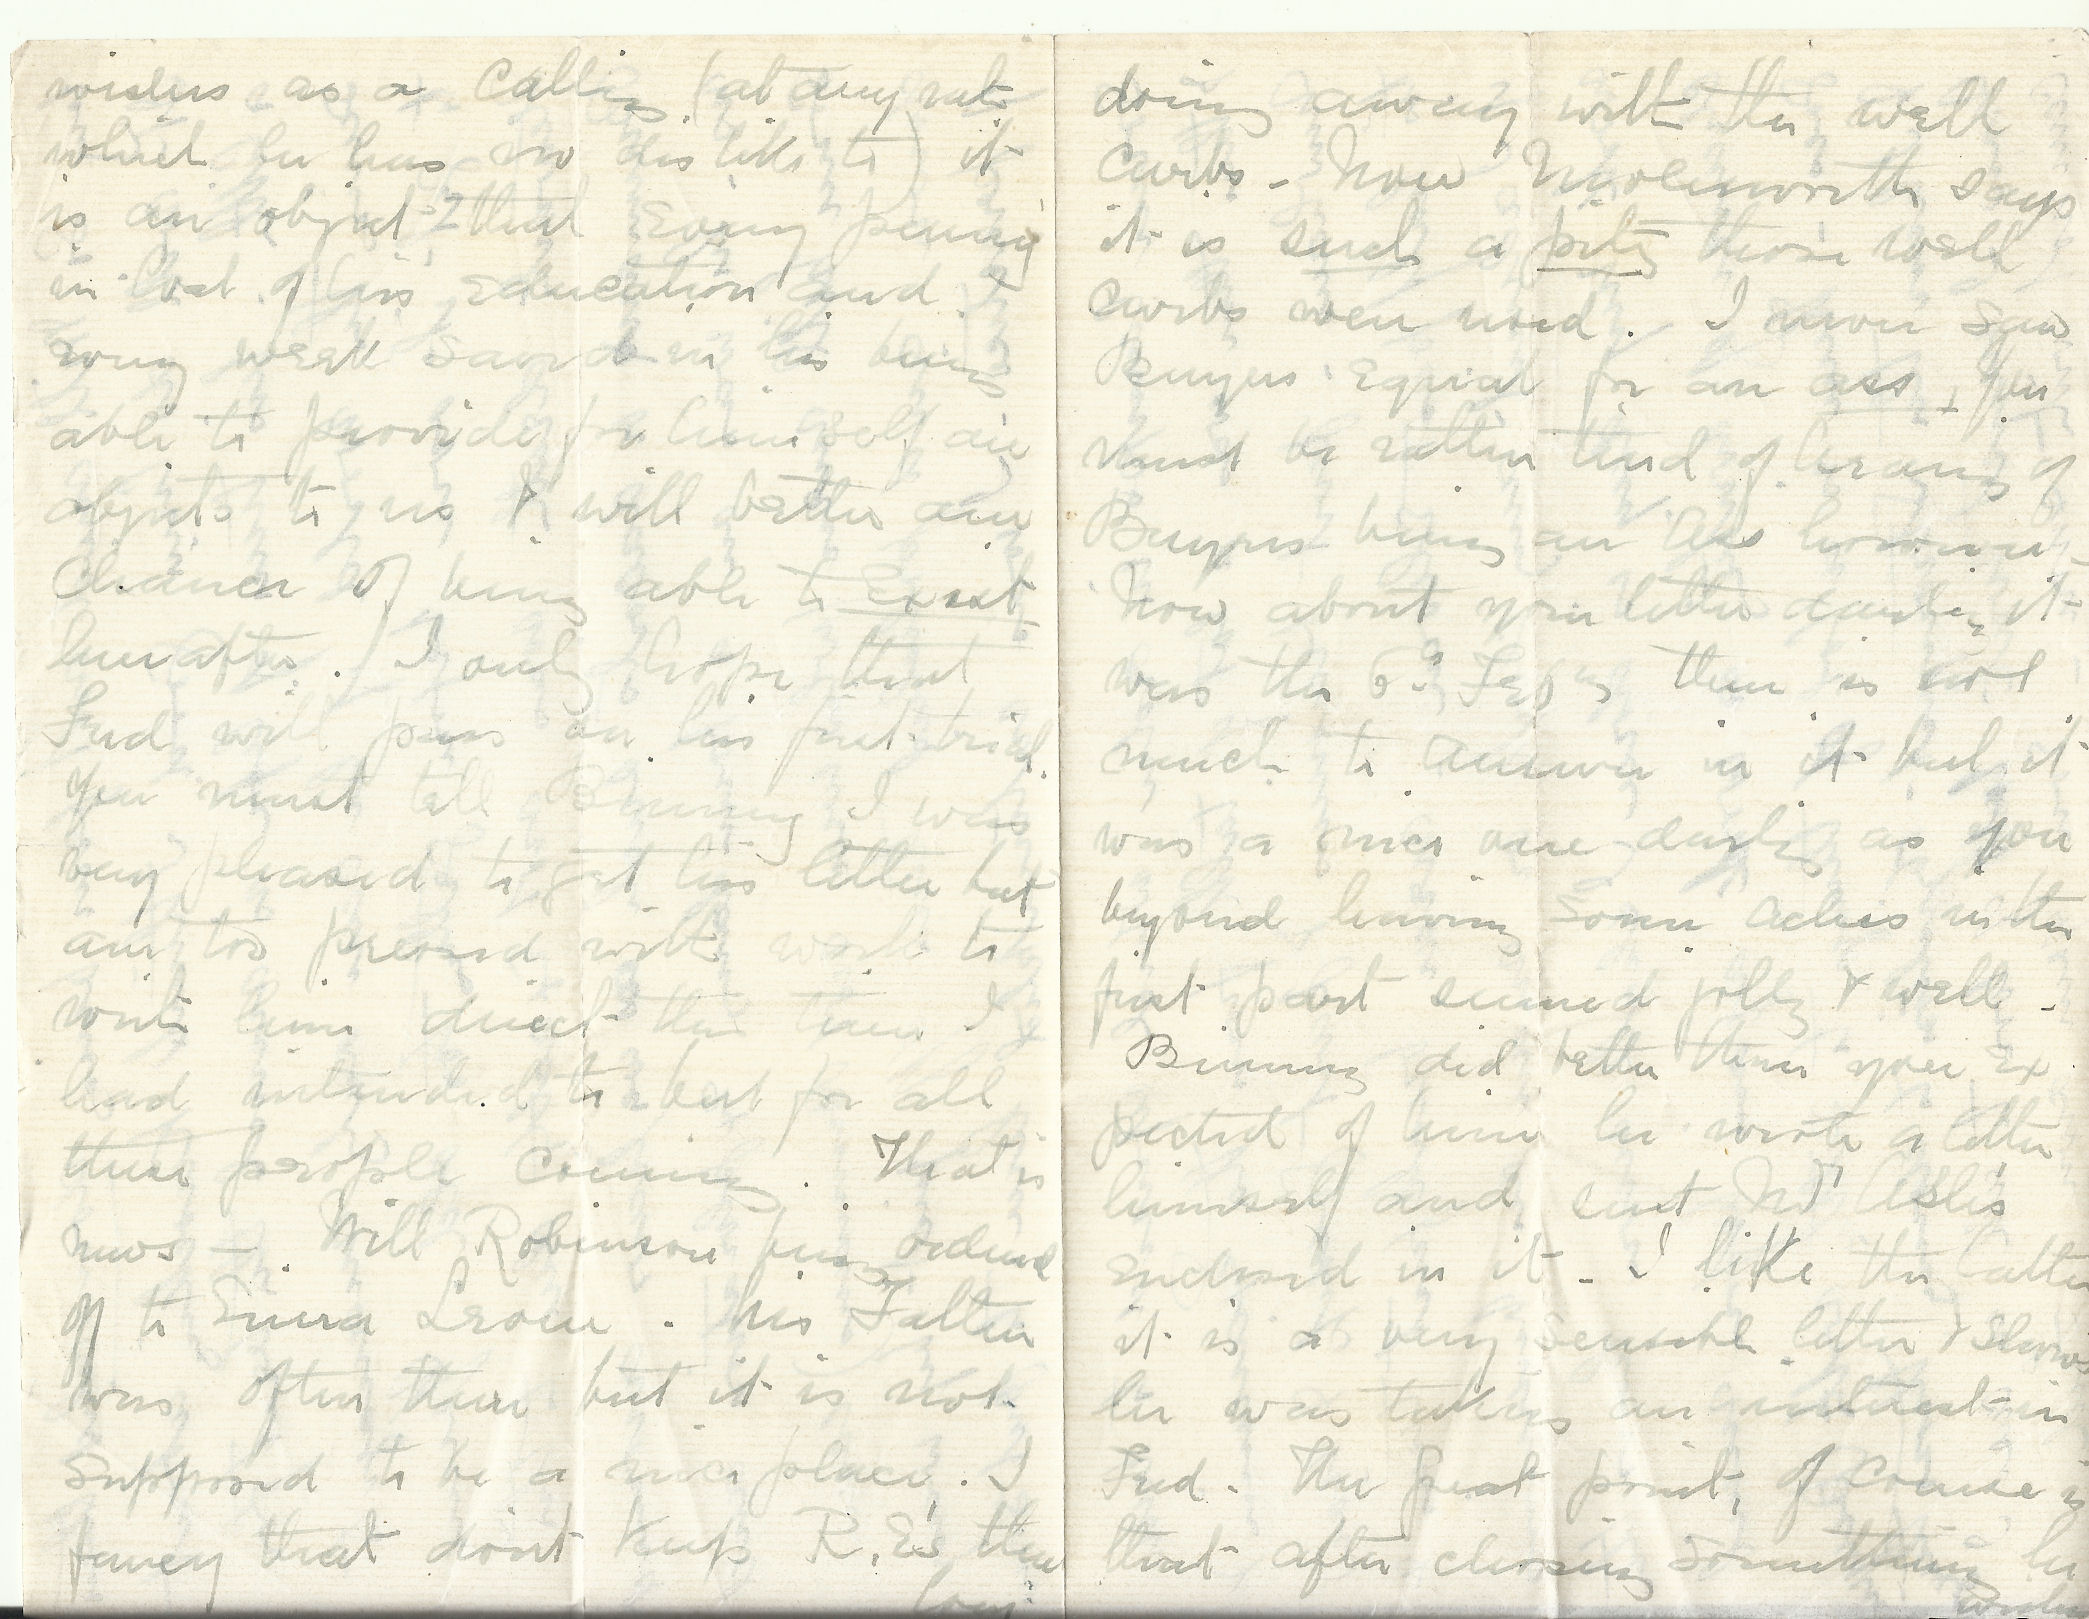 wishes as a calling (at any rate
which he has no dislike to) it
is an object that every penny
in cost of his education and
every week saved in his being
able to provide for himself are
objects to us & will better our
chance of being able to Exist
hereafter. I only hope that
Fred will pass on his first trial.
You must tell Binny I was
very pleased to get his letter but
am too pressed with work to
write him direct this time I
had intended to but for all
these people coming. That is
news - Will Robinson being ordered
off to Sierra Leone. his Father
was often there but it is not
supposed to be a nice place. I
fancy that don't keep R.E's there
long
doing away with the well
curbs - Now Molesworth says
it is such a pity those well
curbs were used. I never saw
Buyers equal for an ass, you
must be rather tired of hearing of
Buyers being an Ass however -
Now about your letter darling it
was the 6th Feby there is not
much to answer in it but it
was a nice one darling as you
beyond having some aches in the
first part seemed jolly & well -
Binny did better than you ex
pected of him he wrote a letter
himself and sent Mr Ashe's
enclosed in it - I like the latter
it is a very sensible letter & shows
he was taking an interest in
Fred - The great point, of course is
that after choosing something he
wishes